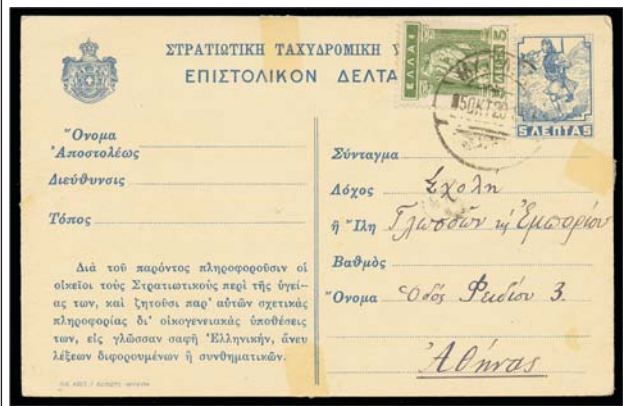 ΣΤΡΑΤΙΩΤΙΚΗ ΤΑΧΥΔΡΟΜΙΚΗ Υ
ΕΠΙΣΤΟΛΙΚΟΝ ΔΕΛΤΑ
ΕΛΛΑΣ
5 ΛΕΠΤΑ 5
Ὄνομα
Ἀποστολέως
Διεύθυνσις
Τόπος
Διὰ τοῦ παρόντος πληροφοροῦσιν οἱ
οἰκεῖοι τοὺς Στρατιωτικοὺς περὶ τῆς ὑγεί-
ας των, καὶ ζητοῦσι παρ' αὐτῶν σχετικὰς
πληροφορίας δι' οἰκογενειακὰς ὑποθέσεις
των, εἰς γλῶσσαν σαφῆ Ἑλληνικήν, ἄνευ
λέξεων διφορουμένων ἢ συνθηματικῶν.
Σύνταγμα
Λόχος Σχολὴ
ἢ Ἴλη Γλωσσῶν κ Ἐμπορίου
Βαθμὸς
Ὄνομα Ὁδός Φειδίου 3.
Ἀθήνας